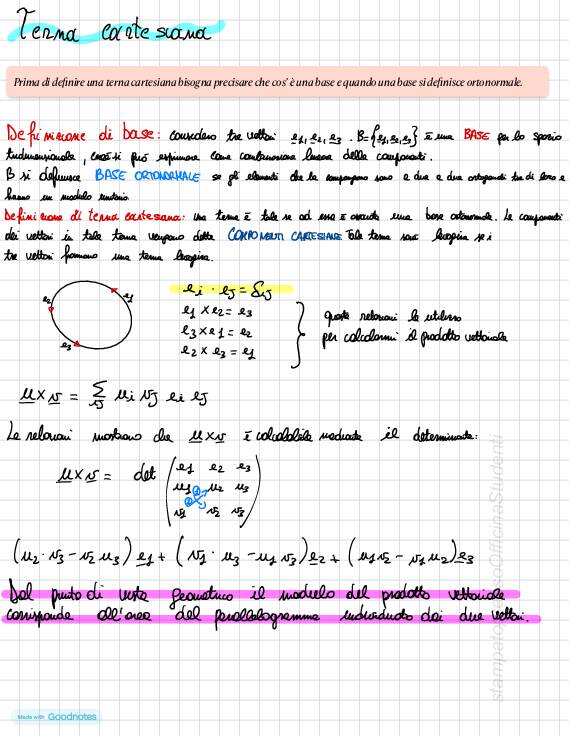 Terna cartesiana
Prima di definire una terna cartesiana bisogna precisare che cos' è una base e quando una base si definisce ortonormale.
Definizione di base: considero tre vettori e1, e2, e3 . B={e1, e2, e3} è una BASE per lo spazio
tridimensionale, così si può esprimere come combinazione lineare delle componenti.
B si definisce BASE ORTONORMALE se gli elementi che la compongono sono a due a due ortogonali tra di loro e
hanno un modulo unitario.
Definizione di terna cartesiana: una terna è tale se ad essa è associata una base ortonormale. Le componenti
dei vettori in tale terna vengono dette COMPONENTI CARTESIANE Tale terna sarà levogira se i
tre vettori formano una terna levogira.
e1
e2
e3
ei · eJ = δiJ
e1 × e2 = e3
e3 × e1 = e2
e2 × e3 = e1
queste relazioni le utilizzo
per calcolarmi il prodotto vettoriale
u×v = ∑ iJ ui vJ ei eJ
Le relazioni mostrano che u×v è calcolabile mediante il determinante:
u×v = det ( e1 e2 e3
u1 u2 u3
v1 v2 v3 )
(u2 · v3 - v2 u3) e1 + (v1 · u3 - u1 v3) e2 + (u1 v2 - v1 u2) e3
Dal punto di vista geometrico il modulo del prodotto vettoriale
corrisponde all'area del parallelogramma individuato dai due vettori.
Made with Goodnotes